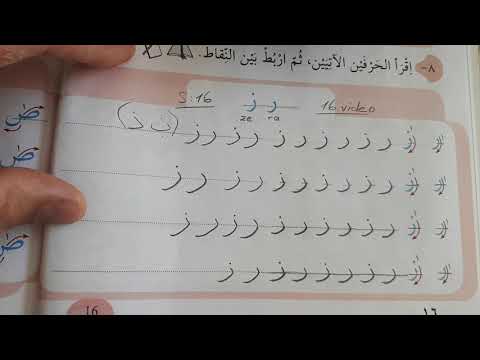 ٨- اِقْرَأ الحَرْفَيْن الآتِيَيْن، ثُمَّ ارْبُطْ بَيْن النِّقَاط.
S:16 ر ز 16.video
ze ra
ر ز ر ز ر ز ر ز ر ز ر ز
ر ز ر ز ر ز ر ز ر ز ر ز
ر ز ر ز ر ز ر ز ر ز ر ز
ر ز ر ز ر ز ر ز ر ز
16 ١٦